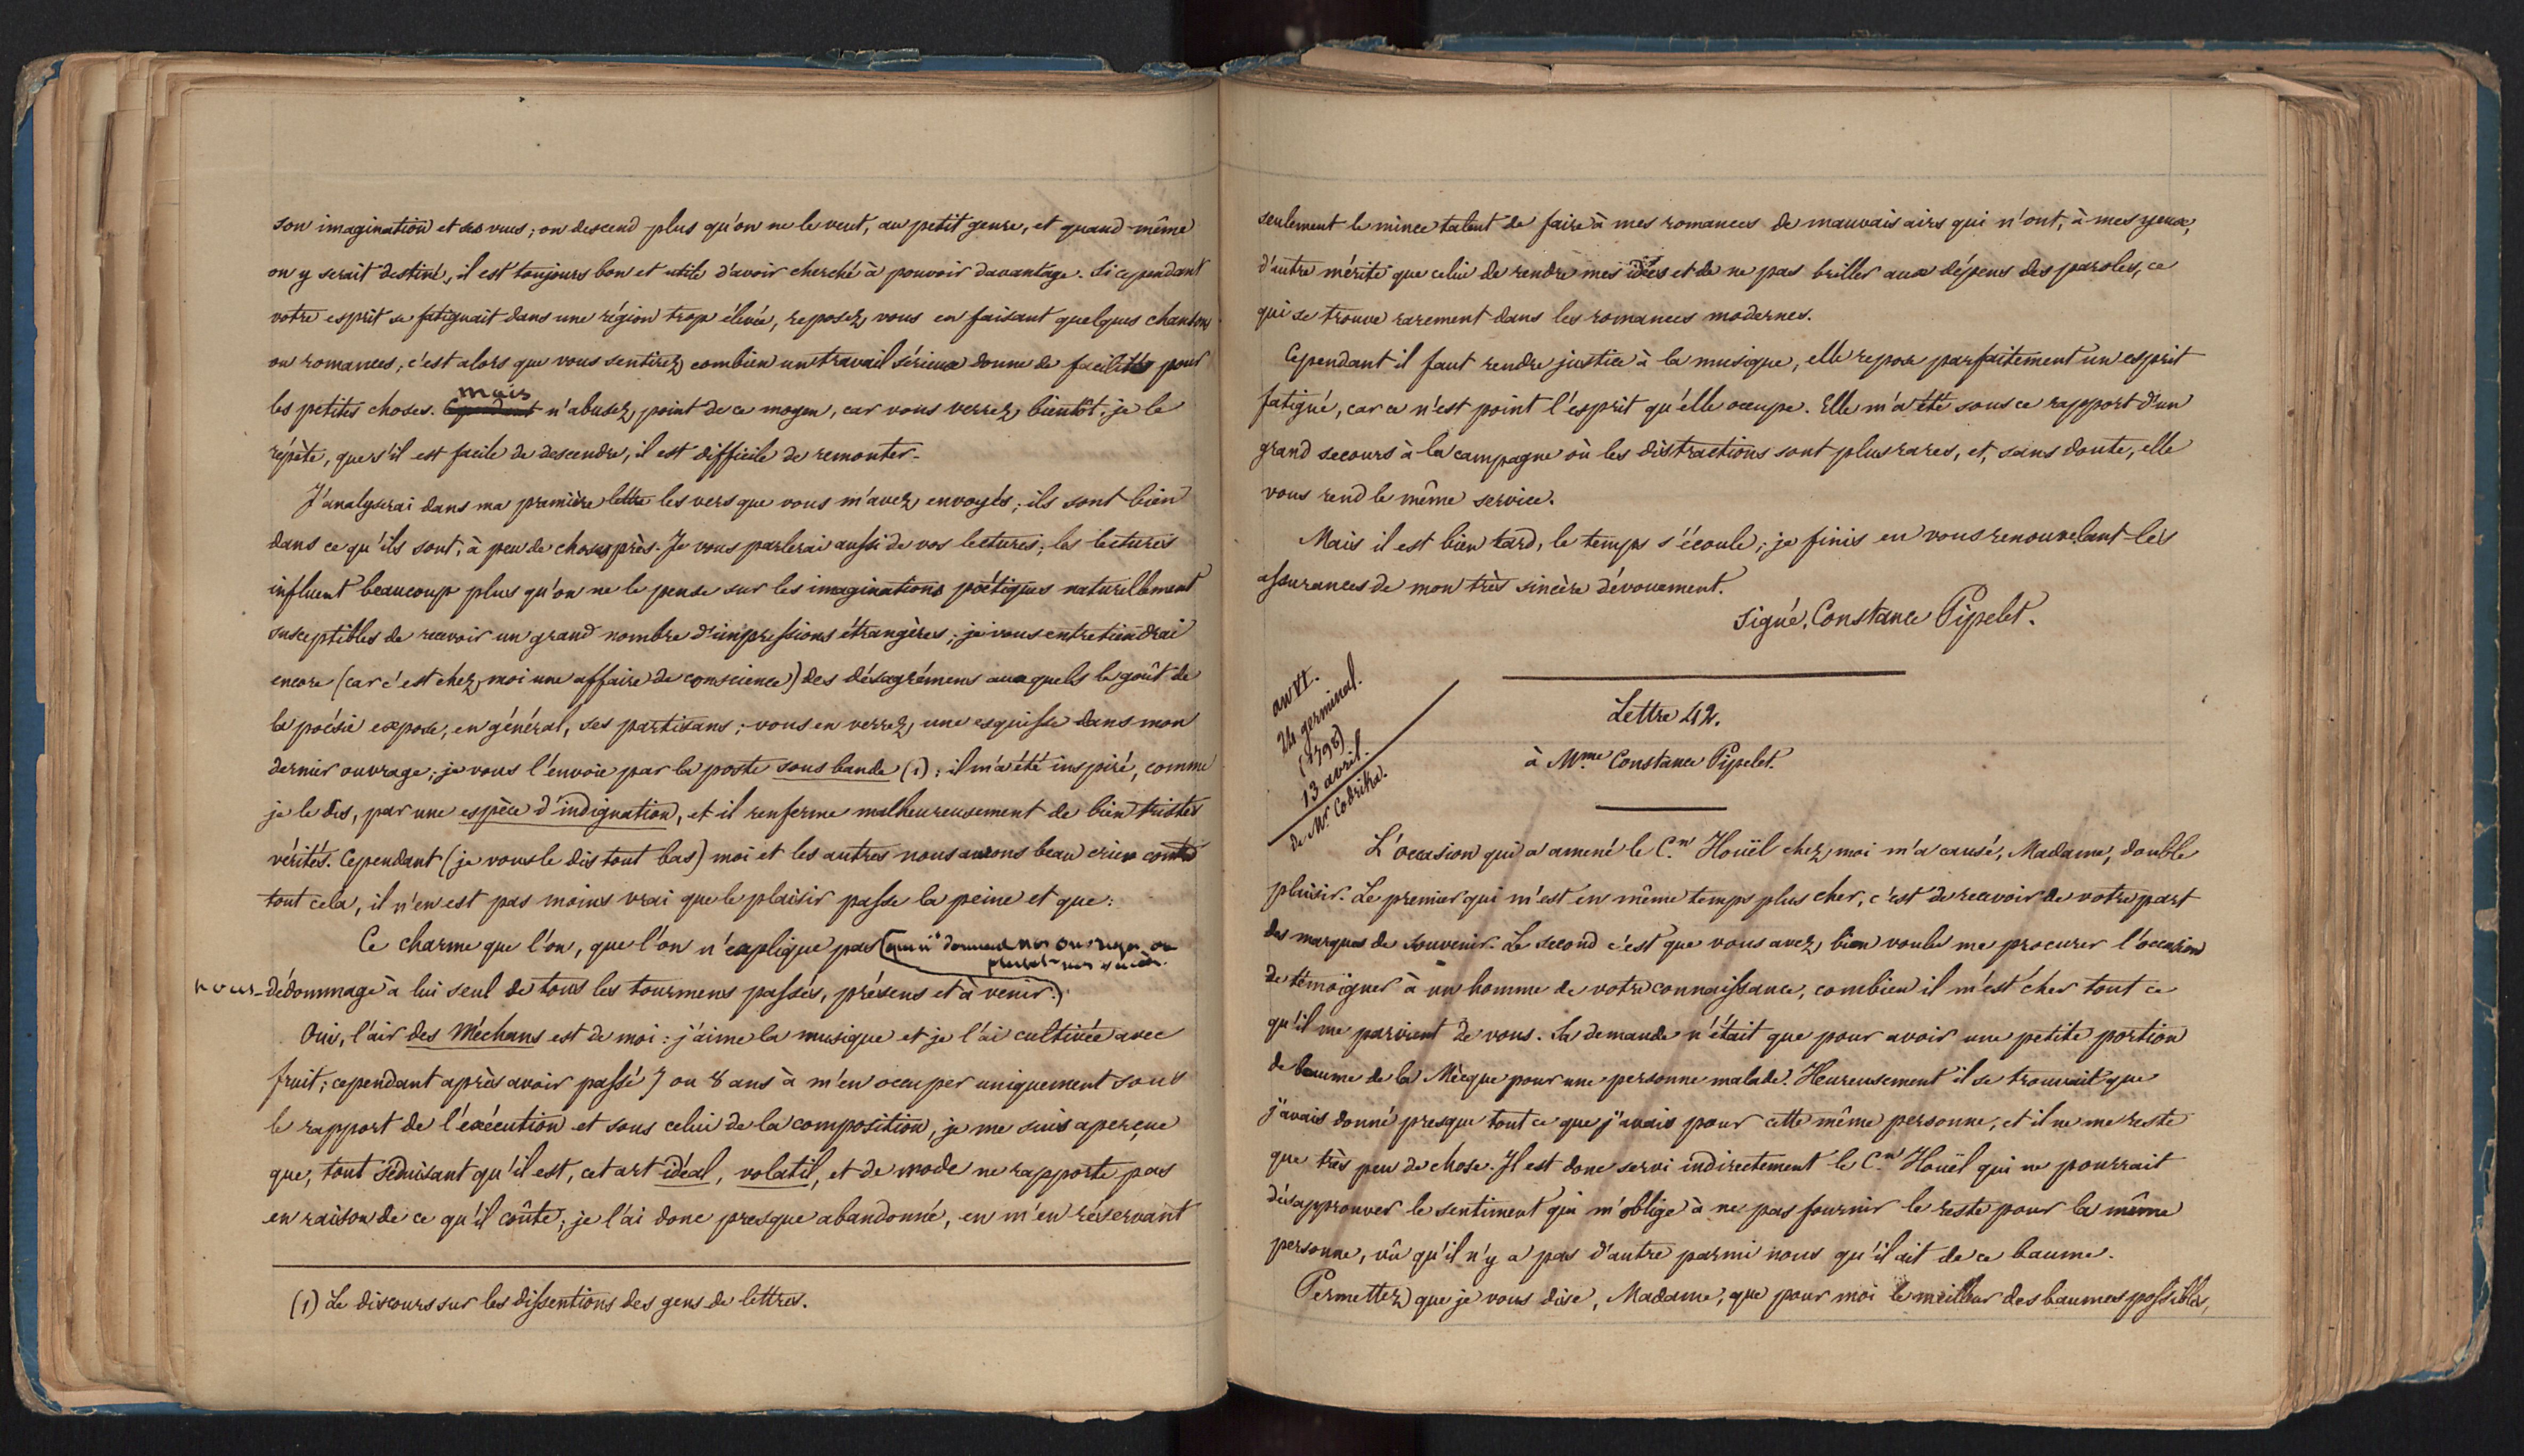 son imagination et ses vues; on descend plus qu'on ne le veut, au petit genre, et quand même
on y serait destiné, il est toujours bon et utile d'avoir cherché à pouvoir davantage. Si cependant
votre esprit se fatiguait dans une région trop élevée, reposez vous en faisant quelques chansons
ou romances, c'est alors que vous sentirez combien un travail sérieux donne de facilités pour
mais
les petites choses. Cependant n'abusez point de ce moyen, car vous verrez bientôt, je le
répète, que s'il est facile de descendre, il est difficile de remonter.
J'analyserai dans ma première lettre les vers que vous m'avez envoyés; ils sont bien
dans ce qu'ils sont, à peu de choses près. Je vous parlerai aussi de vos lectures; les lectures
influent beaucoup plus qu'on ne le pense sur les imaginations poétiques naturellement
susceptibles de recevoir un grand nombre d'impressions étrangères; je vous entretiendrai
encore (car c'est chez moi une affaire de conscience) des désagrémens auxquels le goût de
la poésie expose, en général, ses partisans; vous en verrez une esquisse dans mon
dernier ouvrage; je vous l'envoie par la poste sous bande (1); il m'a été inspiré, comme
je le dis, par une espèce d'indignation, et il renferme malheureusement de bien tristes
vérités. Cependant (je vous le dis tout bas) moi et les autres nous aurons beau crier contre
tout cela, il n'en est pas moins vrai que le plaisir passe la peine et que:
Ce charme que l'on, que l'on n'explique pas (que nous donnent nos ouvrages ou
plutôt nos succès.
nous dédommage à lui seul de tous les tourmens passés, présens et à venir.)
Oui, l'air des Méchans est de moi: j'aime la musique et je l'ai cultivée avec
fruit; cependant après avoir passé 7 ou 8 ans à m'en occuper uniquement sous
le rapport de l'éxécution et sous celui de la composition, je me suis aperçue
que, tout séduisant qu'il est, cet art idéal, volatil, et de mode ne rapporte pas
en raison de ce qu'il coûte; je l'ai donc presque abandonné, en m'en réservant
(1) Le discours sur les dissentions des gens de lettres.
seulement le mince talent de faire à mes romances de mauvais airs qui n'ont, à mes yeux,
d'autre mérite que celui de rendre mes idées et de ne pas briller aux dépens des paroles, ce
qui se trouve rarement dans les romances modernes.
Cependant il faut rendre justice à la musique, elle repose parfaitement un esprit
fatigué, car ce n'est point l'esprit qu'elle occupe. Elle m'a été sous ce rapport d'un
grand secours à la campagne où les distractions sont plus rares, et, sans doute, elle
vous rend le même service.
Mais il est bien tard, le temps s'écoule; je finis en vous renouvelant les
assurances de mon très sincère dévouement.
Signé, Constance Pipelet.
an VI.
24 germinal.
(1798)
13 avril.
de Mr. Codrika.
Lettre 42.
à Mme Constance Pipelet.
L'occasion qui a amené le C.en Houël chez moi m'a causé, Madame, double
plaisir. Le premier qui m'est en même temps plus cher, c'est de recevoir de votre part
des marques de souvenir. Le second c'est que vous avez bien voulu me procurer l'occasion
de témoigner à un homme de votre connaissance, combien il m'est cher tout ce
qu'il me parvient de vous. Sa demande n'était que pour avoir une petite portion
de baume de la Mècque pour une personne malade. Heureusement il se trouvait que
j'avais donné presque tout ce que j'avais pour cette même personne, et il ne me reste
que très peu de chose. Il est donc servi indirectement le C.en Houël qui ne pourrait
désapprouver le sentiment qui m'oblige à ne pas fournir le reste pour la même
personne, vû qu'il n'y a pas d'autre parmi nous qu'il ait de ce baume.
Permettez que je vous dise, Madame, que pour moi le meilleur des baumes possibles,